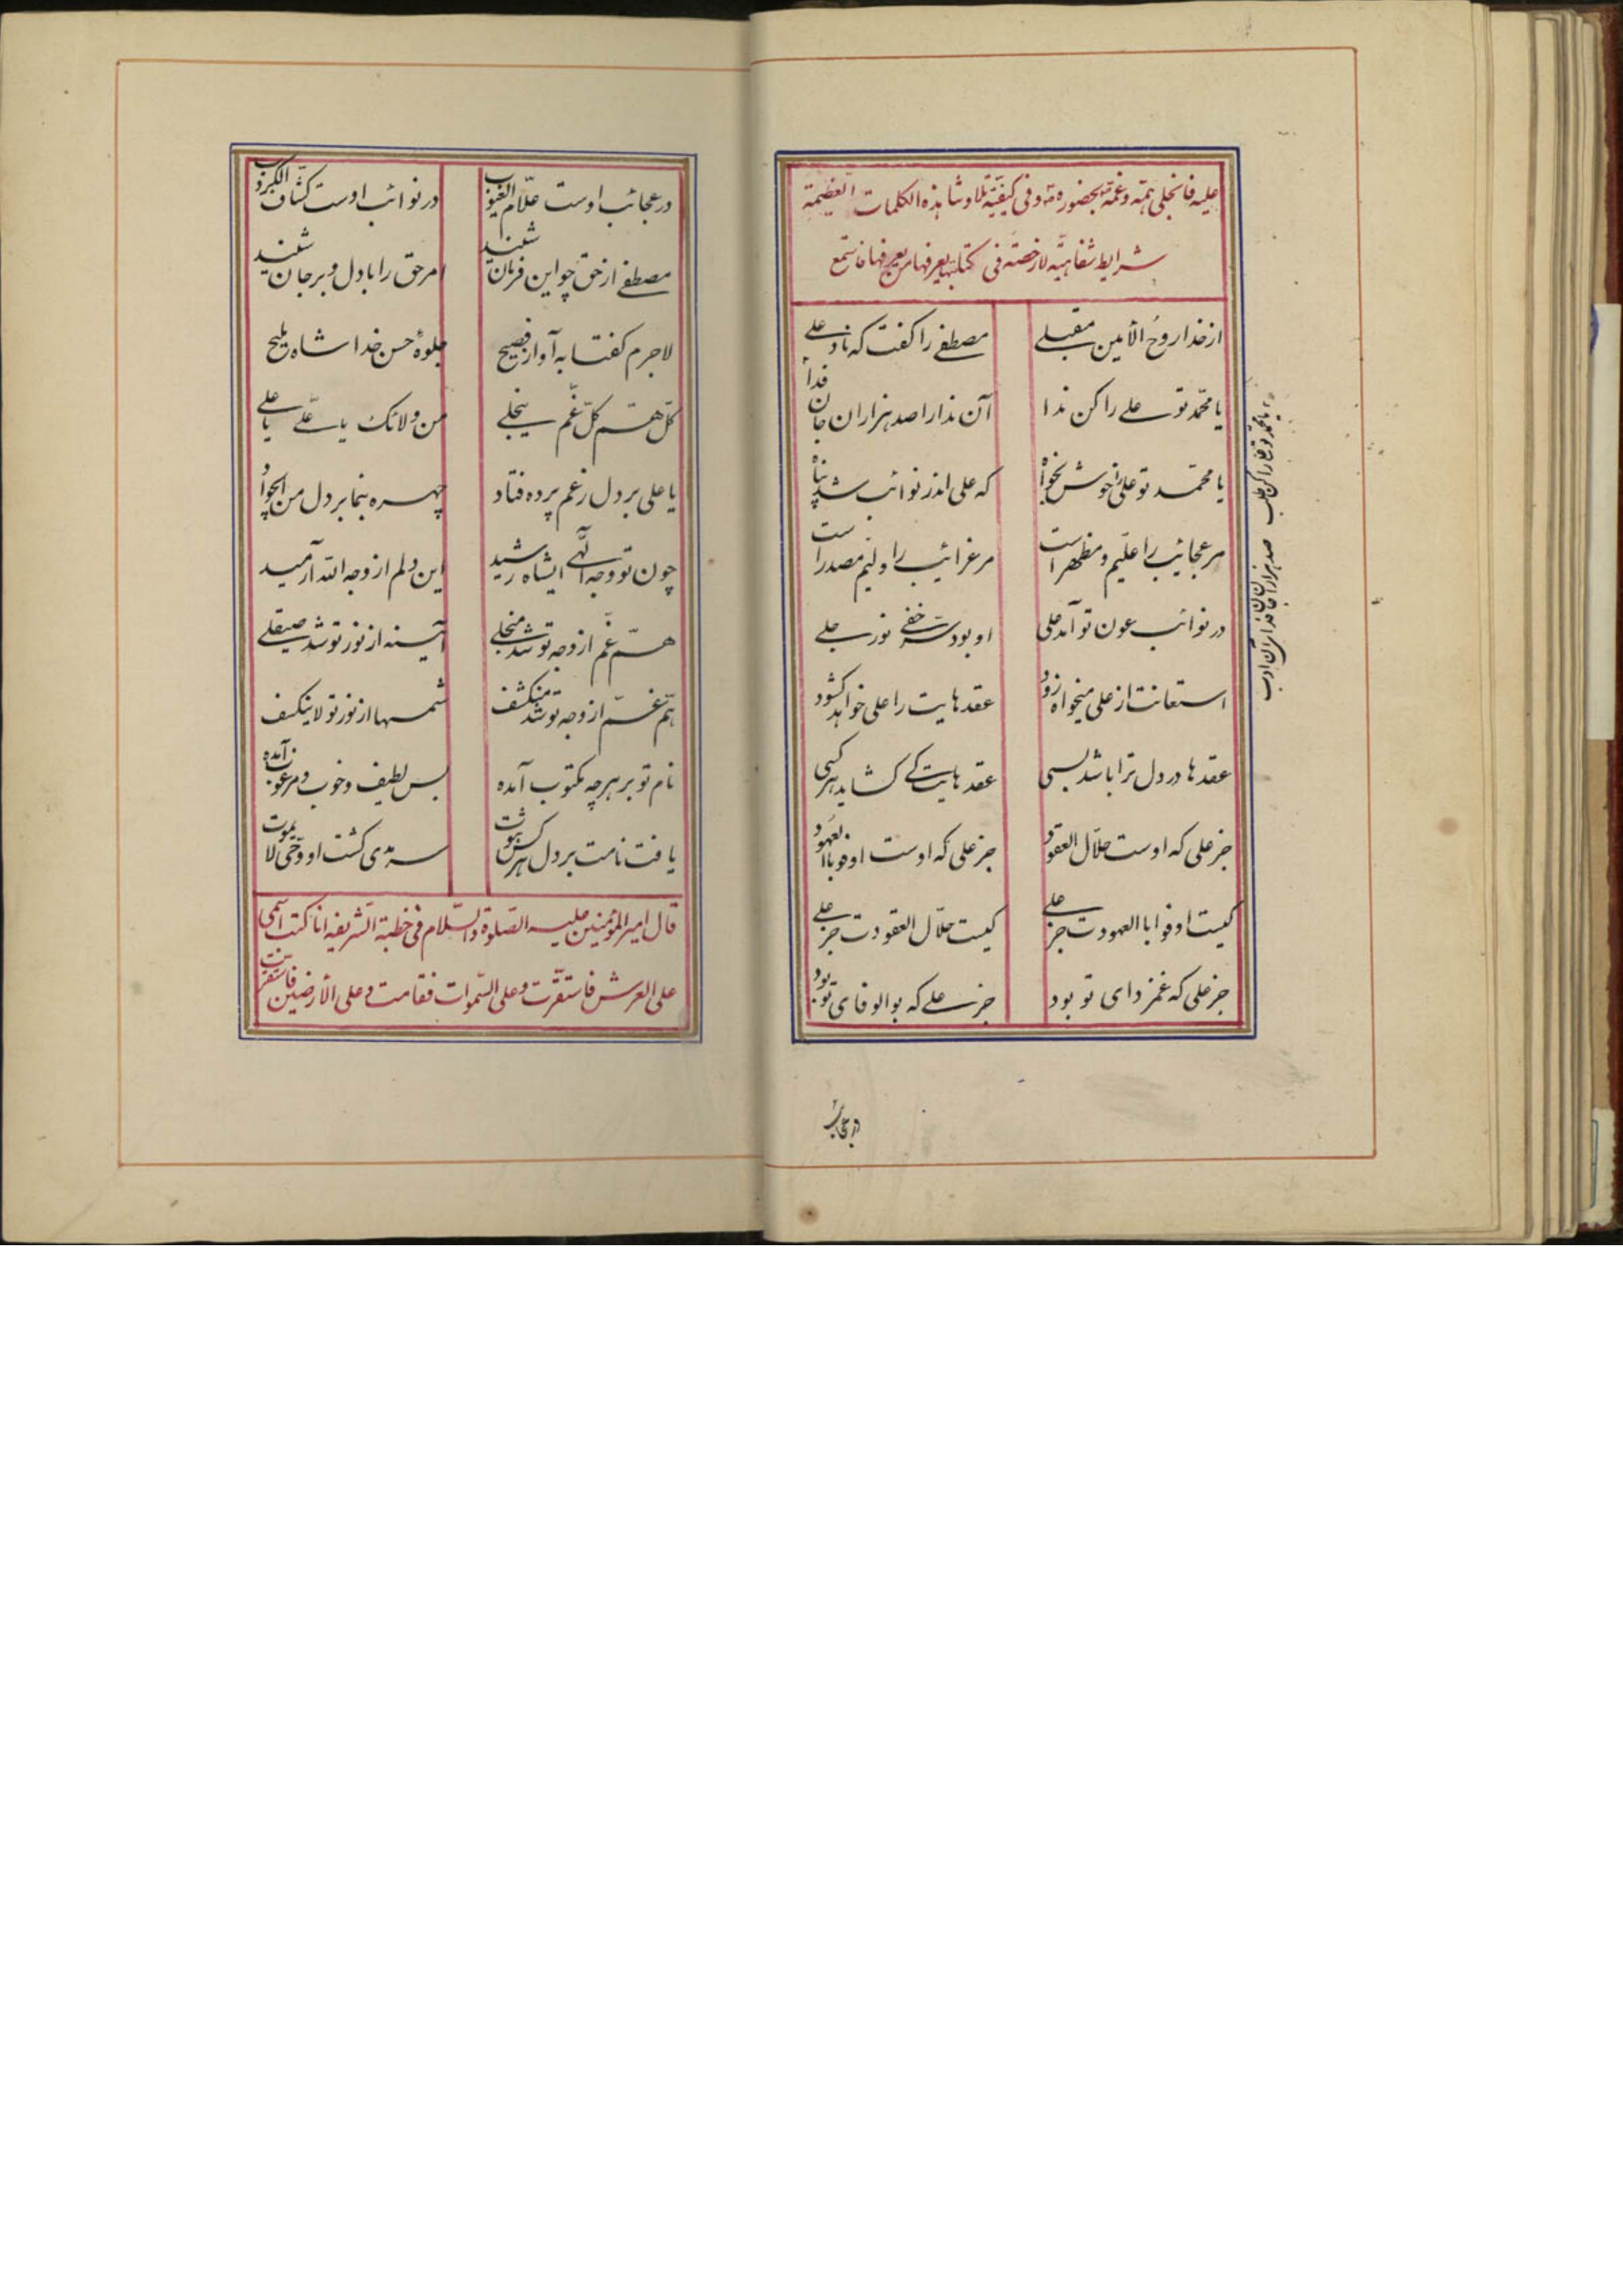 علیه فانجلی همّه و غمّه بحضوره و فی کیفیّة تلاوت هذه الکلمات العظیمة
شرایط شفاهیّه لا رخصة فی کتابتها یعرفها من یعرفها فاستمع
از خدا روح الأمین مقبلی مصطفی را کفت که ناد علی
یا محمّد تو علی را کن ندا آن ندا را صد هزاران جان فدا
یا محمّد تو علی را خوش بخواه که علی اندر نوائب شد پناه
مر عجائب را علیم و مظهر است مر غرائب را ولیم مصدر است
در نوائب عون تو آمد علی او بود سرّ خفی نور جلی
استعانت از علی میخواه زود عقدهایت را علی خواهد کشود
عقدها در دل ترا باشد بسی عقدهایت کی کشاید هر کسی
جز علی که اوست حلّال العقود جز علی که اوست اوفوا بالعهود
کیست اوفوا بالعهودت جز علی کیست حلّال العقودت جز علی
جز علی که غمزدای تو بود جز علی که بوالوفای تو بود
یا محمّد تو علی را کن طلب صد هزاران جان فدای آن ادب
در عجائب
در عجائب اوست علّام الغیوب در نوائب اوست کشّاف الکروب
مصطفی از حق چو این فرمان شنید امر حق را با دل و بر جان شنید
لاجرم کفتا به آواز فصیح جلوهٔ حسن خدا شاه ملیح
کلّ همّ کلّ غمّ ینجلی من ولائک یا علی یا علی
یا علی بر دل ز غم پرده فتاد چهره بنما بر دل من ای جواد
چون تو وجه اللّهی ای شاه رشید این دلم از وجه الله آرمید
همّ غم از وجه تو شد منجلی آینه از نور تو شد صیقلی
همّ غمّ از وجه تو شد منکشف شمسها از نور تو لا ینکسف
نام تو بر هرچه مکتوب آمده بس لطیف و خوب و مرغوب آمده
یافت نامت بر دل هر کس ثبوت سرمدی کشت او و حیّ لا یموت
قال امیر المؤمنین علیه الصّلوة و السّلام فی خطبة الشریفه انا کتب اسمی
علی العرش فاستقرّت و علی السّموات فقامت و علی الأرضین فاستقرّت